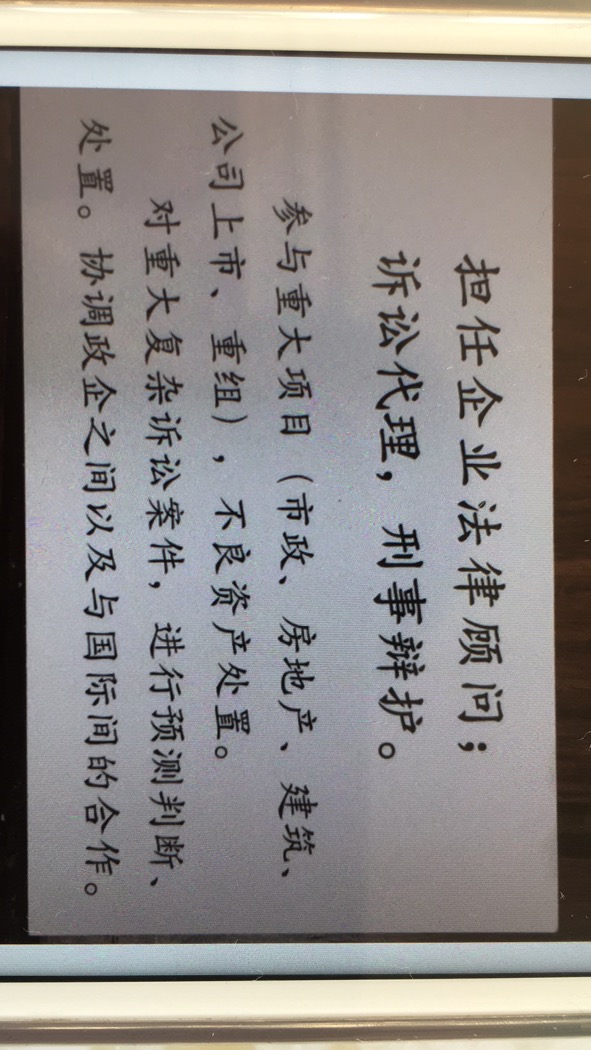 担任企业法律顾问；
诉讼代理，刑事辩护。
参与重大项目（市政、房地产、建筑、
公司上市、重组），不良资产处置。
对重大复杂诉讼案件，进行预测判断、
处置。协调政企之间以及与国际间的合作。